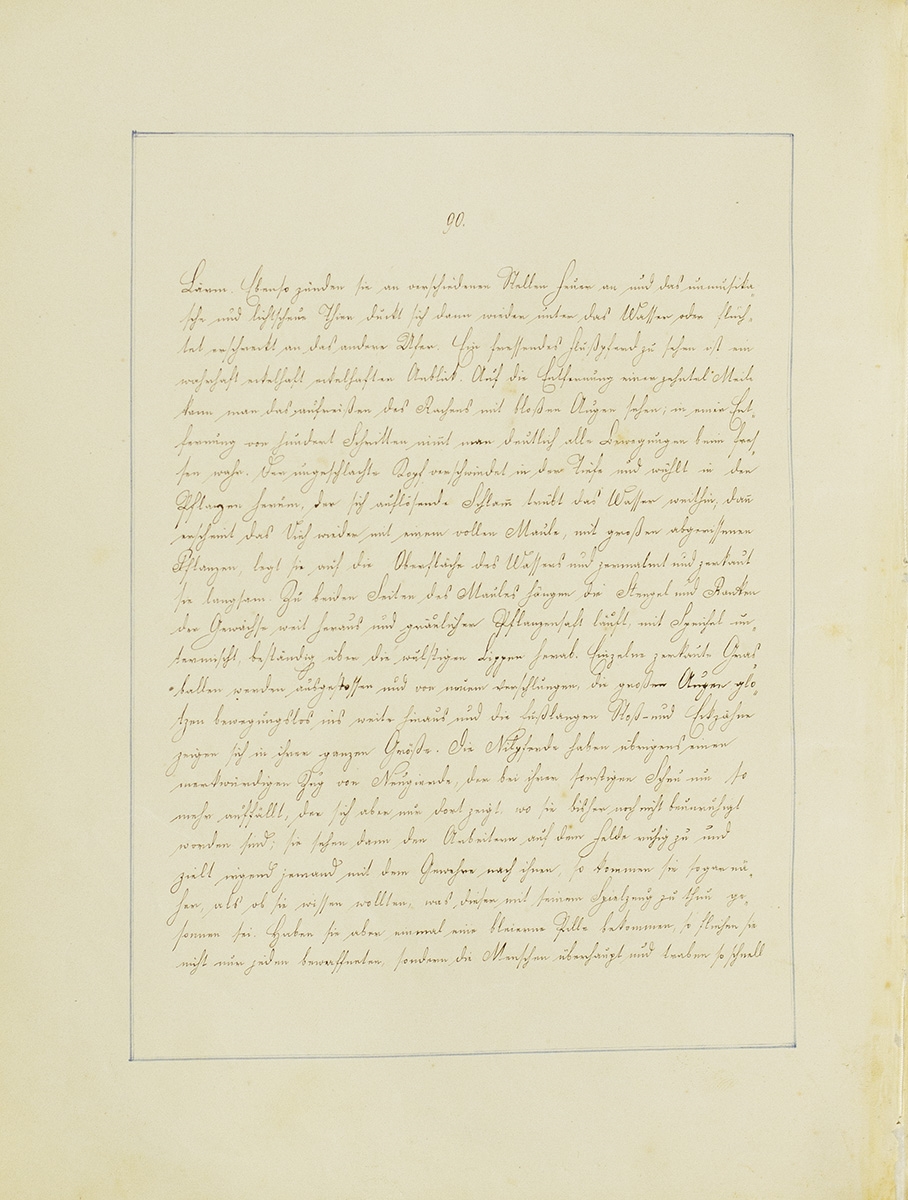 90.
Lärm. Ebenso zünden sie an verschiedenen Stellen Feuer an und das unmusika-
sche und lichtscheue Thier duckt sich dann wieder unter das Wasser oder flüch-
tet erschreckt an das andere Ufer. Ein fressendes Flußpferd zu sehen ist ein
wahrhaft ekelhaft ekelhaften Anblick. Auf die Entfernung einer zehntel Meile
kann man das aufreißen des Rachens mit bloßen Augen sehen; in einer Ent-
fernung von hundert Schritten nimt man deutlich alle Bewegungen beim Fres-
sen wahr. Der ungeschlachte Kopf verschwindet in der Tiefe und wühlt in den
Pflanzen herum, der sich auflösende Schlam̅ trübt das Wasser weithin, dan̅
erscheint das Vieh wieder mit einem vollen Maule, mit großen abgerissenen
Pflanzen, legt sie auf die Oberfläche des Wassers und zermalmt und zerkaut
sie langsam. Zu beiden Seiten des Maules hängen die Stengel und Ranken
der Gewächse weit heraus und gräulicher Pflanzensaft läuft, mit Speichel un-
termischt, beständig über die wulstigen Lippen herab. Einzelne zerkaute Gras
ballen werden ausgestossen und von neuem verschlungen, die großen Augen glo-
tzen bewegungslos ins weite hinaus und die fußlangen Stoß- und Eckzähne
zeigen sich in ihrer ganzen Größe. Die Nilpferde haben übrigens einen
merkwürdigen Zug von Neugierde, der bei ihrer sonstigen Scheu um so
mehr auffällt, der sich aber nur dort zeigt, wo sie bisher noch nicht beunruhigt
worden sind; sie sehen dann den Arbeitern auf dem Felde ruhig zu und
zielt irgend jemand mit dem Gewehre nach ihnen, so kommen sie sogar nä-
her, als ob sie wissen wollten, was dieser mit seinem Spielzeug zu thun ge-
sonnen sei. Haben sie aber einmal eine bleierne Pille bekommen, so fliehen sie
nicht nur jeden bewaffneten, sondern die Menschen überhaupt und traben so schnell